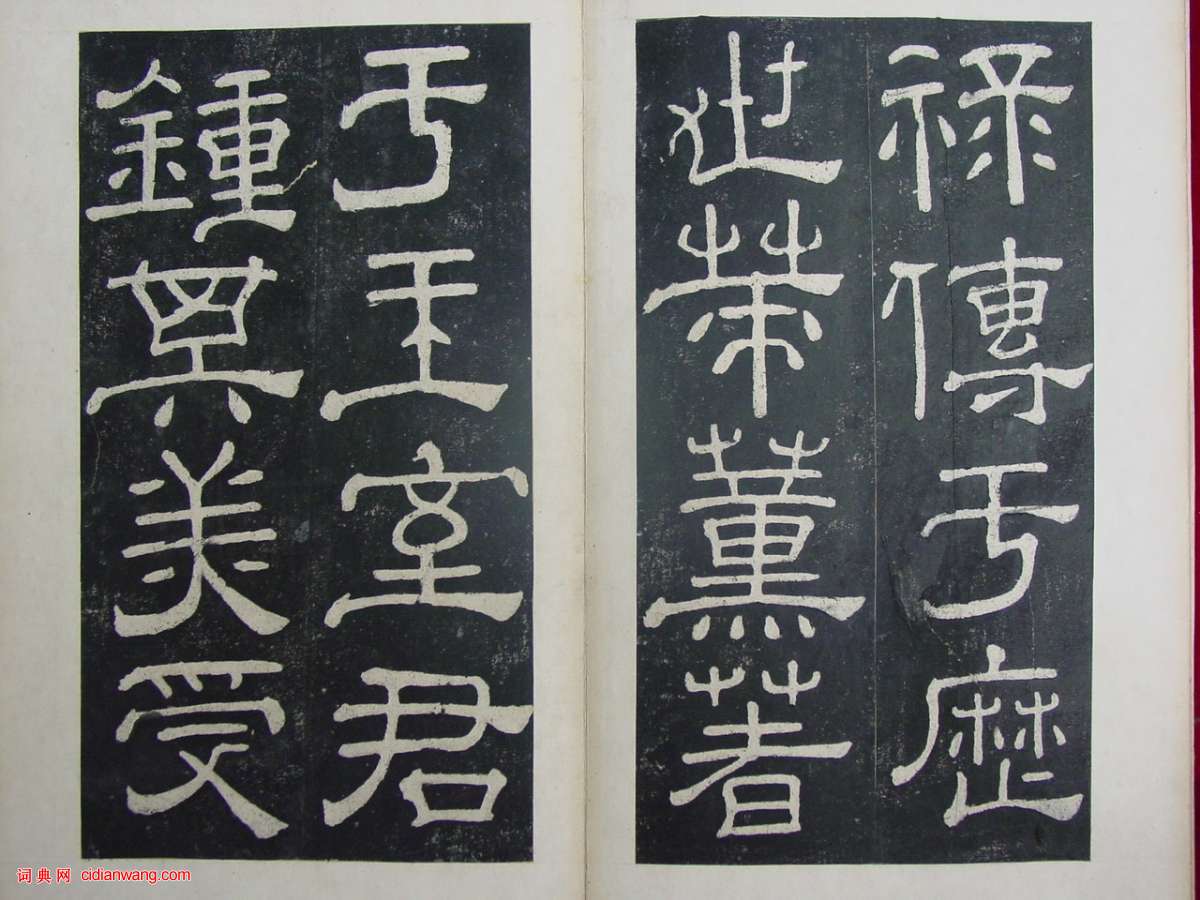 祿傳于歷
世策薰著
于王室君
鍾其美受
词典网 cidianwang.com